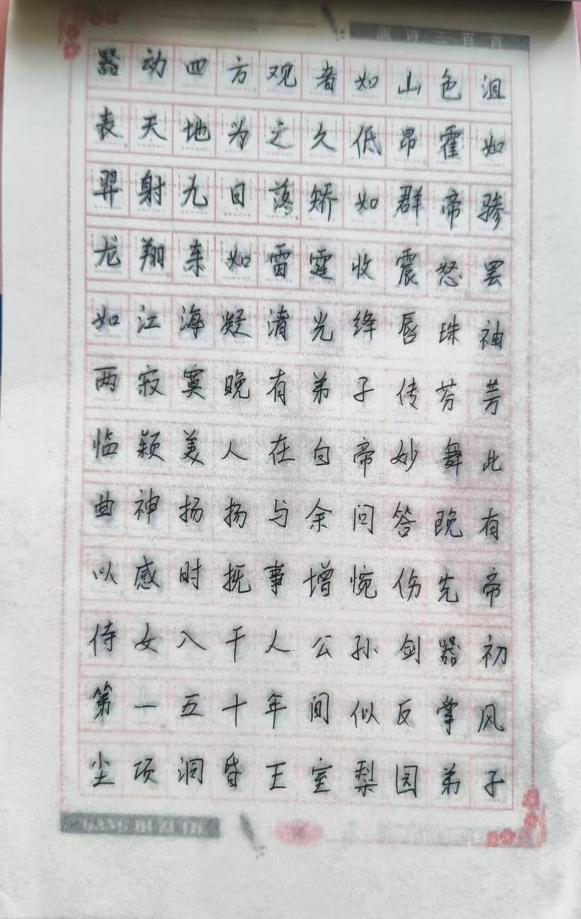 唐诗三百首
器动四方观者如山色沮
表天地为之久低昂霍如
羿射九日落矫如群帝骖
龙翔来如雷霆收震怒罢
如江海凝清光绛唇珠袖
两寂寞晚有弟子传芬芳
临颖美人在白帝妙舞此
曲神扬扬与余问答晚有
以感时抚事增惋伤先帝
侍女入千人公孙剑器初
第一五十年间似反掌风
尘项洞昏王室梨园弟子
GANG BI ZI TIE